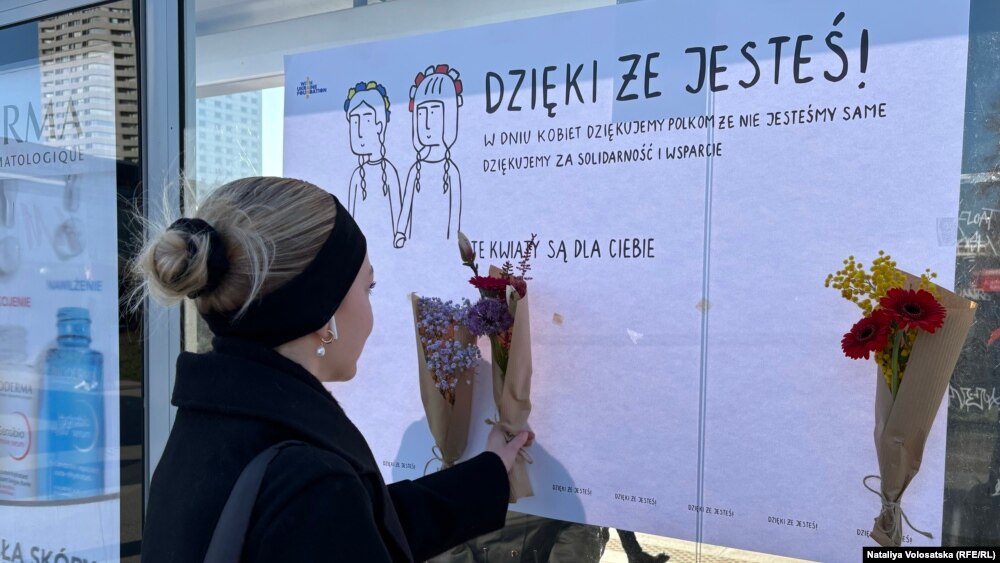 DZIĘKI ŻE JESTEŚ!
W DNIU KOBIET DZIĘKUJEMY POLKOM ŻE NIE JESTEŚMY SAME
DZIĘKUJEMY ZA SOLIDARNOŚĆ I WSPARCIE
TE KWIATY SĄ DLA CIEBIE
DZIĘKI ŻE JESTEŚ!
DZIĘKI ŻE JESTEŚ!
DZIĘKI ŻE JESTEŚ!
DZIĘKI ŻE JESTEŚ!
DZIĘKI ŻE JESTEŚ!
DZIĘKI ŻE JESTEŚ!
UKRAINE
FOUNDATION
RMA
MATOLOGIQUE
NAWILŻENIE
FLOAT
Nataliya Volosatska (RFE/RL)